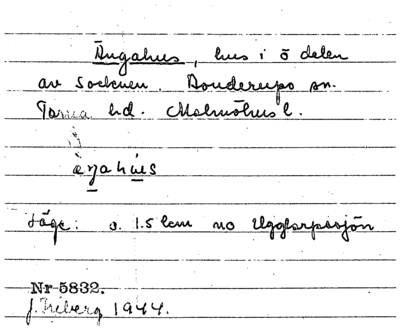 Ängahus, hus i ö delen
av socknen. Bonderups sn.
Torna hd. Malmöhus l.
äŋahu̇s
Läge: o. 1.5 km no Ugglarpssjön
Nr 5832.
J. Treberg 1944.